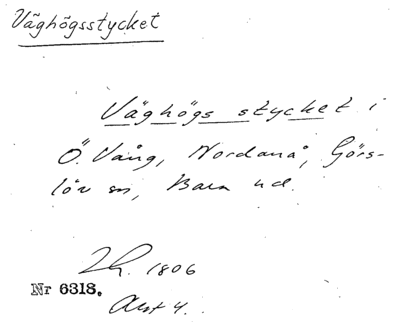 Väghögsstycket
Väghögs stycket i
Ö. Vång, Nordanå, Görs-
löv sn, Bara hd.
1806
Nr 6318.
Akt 4.